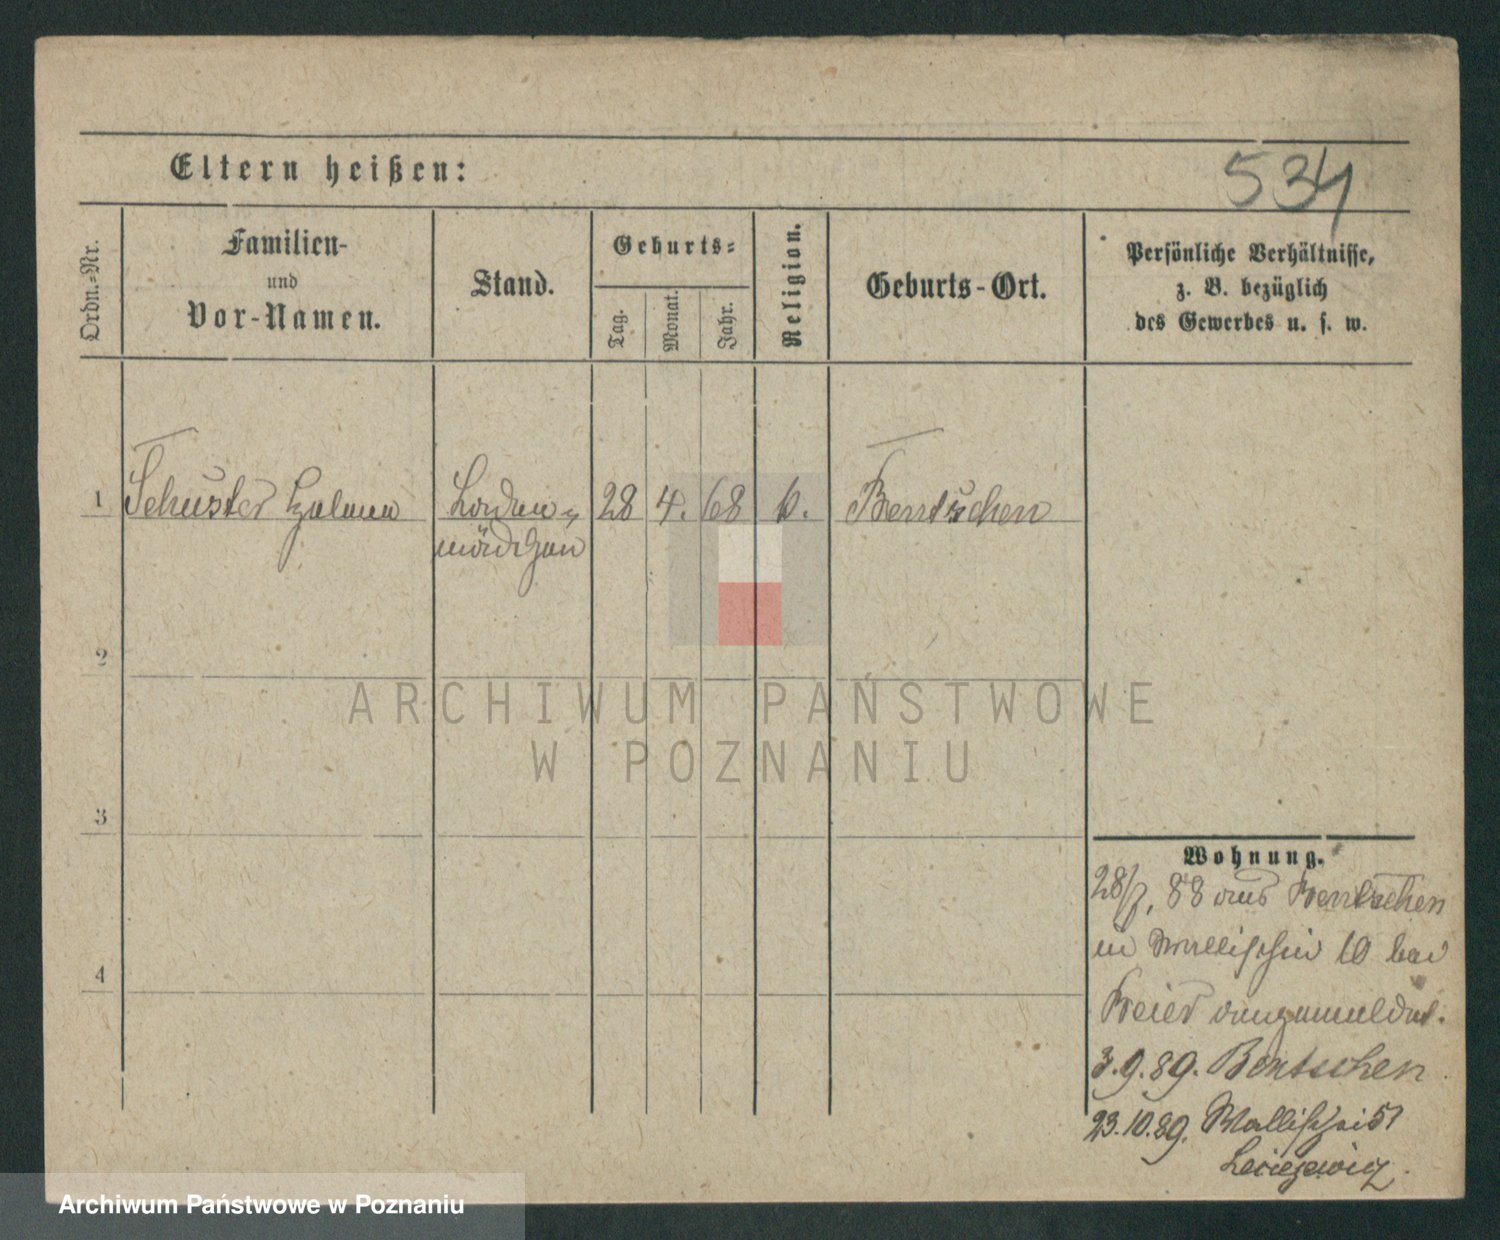 Eltern heißen:
534
Ordn.-Nr.
Familien-
und
Vor-Namen.
Stand.
Geburts-
Tag.
Monat.
Jahr.
Religion.
Geburts-Ort.
Persönliche Verhältnisse,
z. B. bezüglich
des Gewerbes u. s. w.
1
Schuster Helene
Laden-
mädchen
28
4.
68
k.
Bentschen
2
3
4
Wohnung.
28/7. 88 aus Bentschen
in Wallischei 10 bei
Beier angemeldet.
3.9.89. Bentschen
23.10.89. Wallischei 51
ARCHIWUM PAŃSTWOWE
W POZNANIU
Archiwum Państwowe w Poznaniu